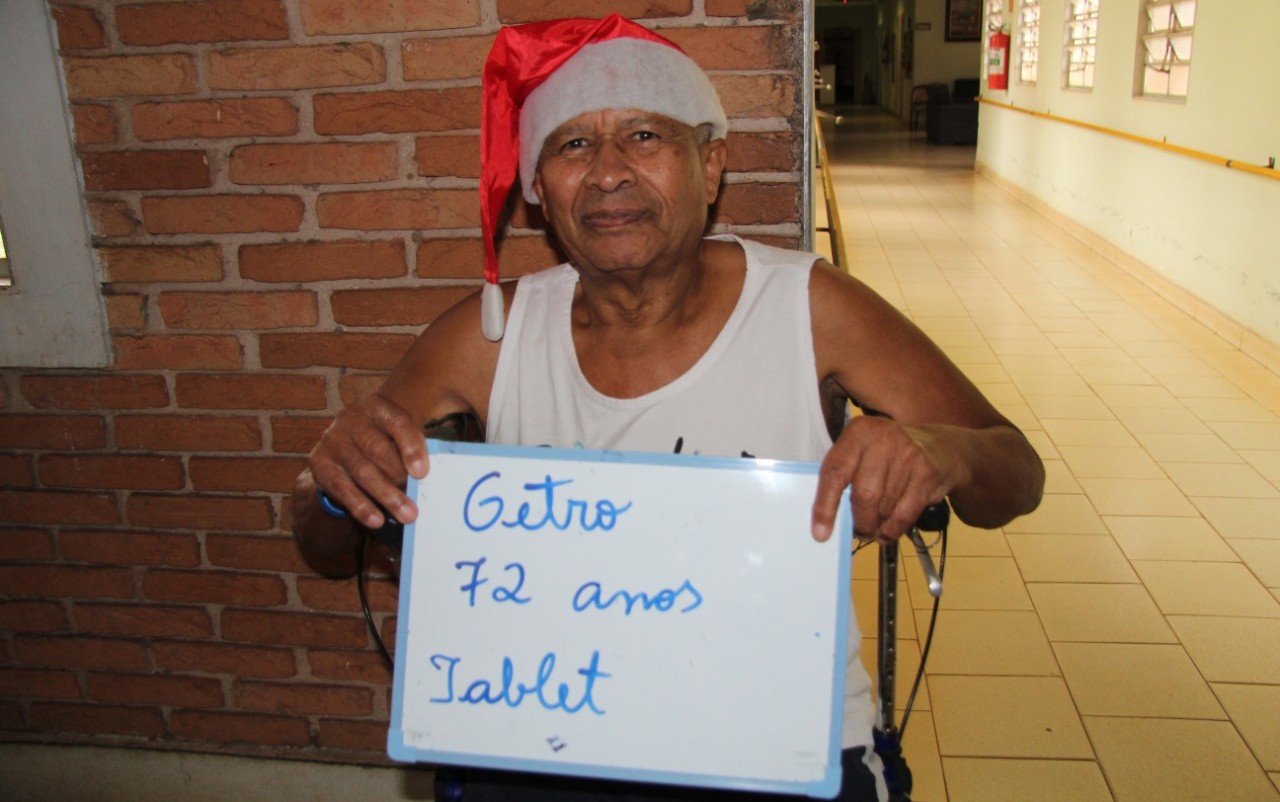 Getro
72 anos
Tablet